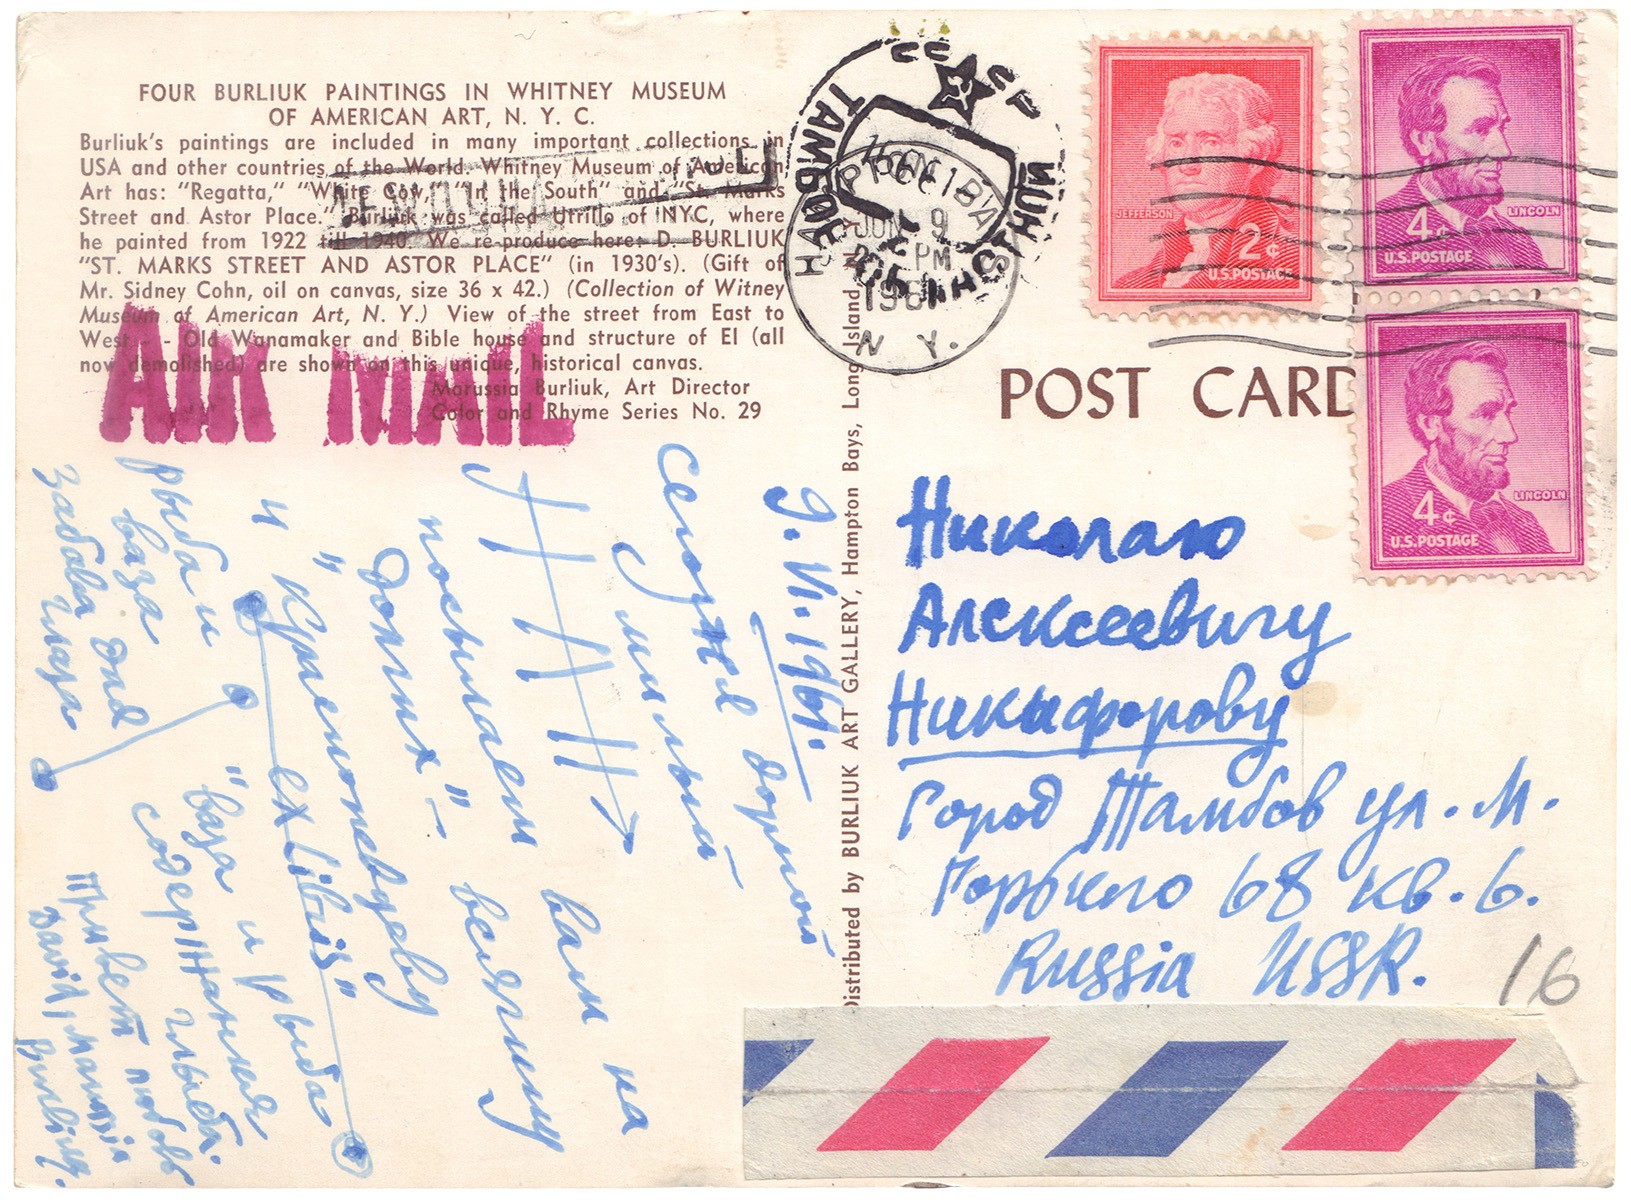 FOUR BURLIUK PAINTINGS IN WHITNEY MUSEUM
OF AMERICAN ART, N. Y. C.
Burliuk's paintings are included in many important collections in
USA and other countries of the World. Whitney Museum of American
Art has: "Regatta," "White Cow," "In the South" and "St. Marks
Street and Astor Place." Burliuk was called Utrillo of NYC, where
he painted from 1922 till 1940. We re-produce here: D. BURLIUK
"ST. MARKS STREET AND ASTOR PLACE" (in 1930's). (Gift of
Mr. Sidney Cohn, oil on canvas, size 36 x 42.) (Collection of Witney
Museum of American Art, N. Y.) View of the street from East to
West - - Old Wanamaker and Bible house and structure of El (all
now demolished) are shown on this unique, historical canvas.
Marussia Burliuk, Art Director
Color and Rhyme Series No. 29
AIR MAIL
9. VI. 1961.
Сегодня дорогой
милый
Н Н Н
вам на
посылаем всяткину
Долгих" –
Крлемоневдеву
и "
ex libris"
рыба и "ваза и рыба
ваза для содержания
забава глаза глыба.
Привет любовь
David, Marussia
Burliuk.
Distributed by BURLIUK ART GALLERY, Hampton Bays, Long Island, N. Y.
СССР
ТАМБОВ
МИНСВЯЗИ
JUN 9
PM
1961
N. Y.
JEFFERSON
2¢
U.S. POSTAGE
LINCOLN
4¢
U.S. POSTAGE
LINCOLN
4¢
U.S. POSTAGE
POST CARD
Николаю
Алексеевичу
Никифорову
Город Тамбов ул. М.
Горького 68 кв. 6.
Russia USSR.
16